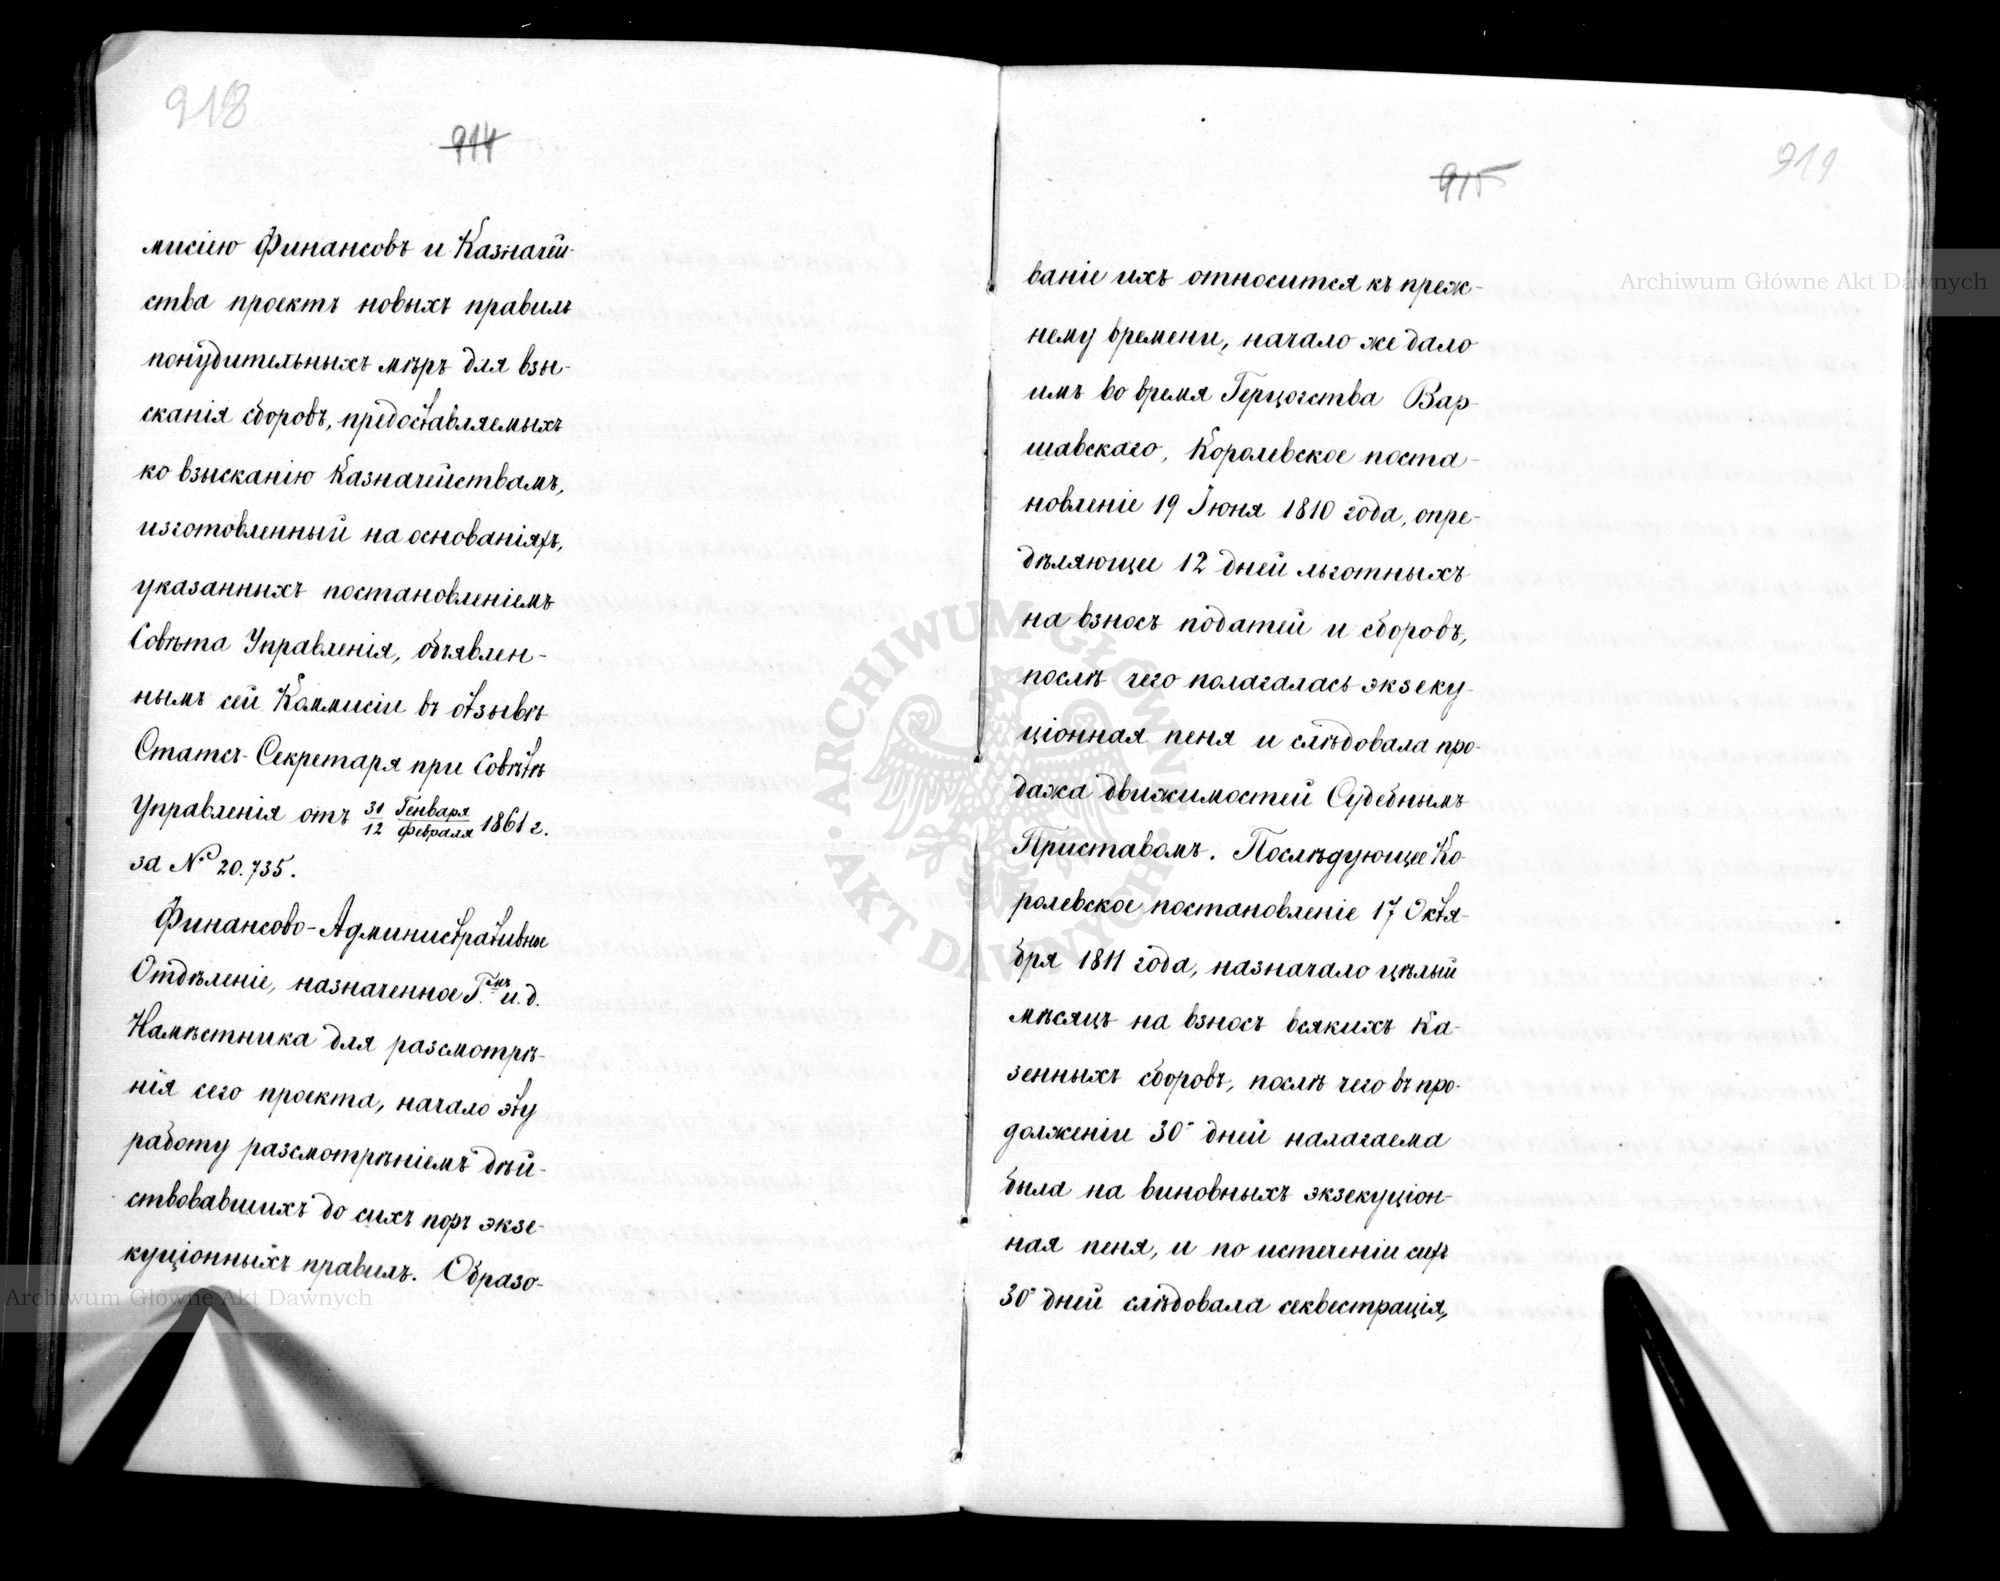 918
914
мисіею Финансовъ и Казначей-
ства проектъ новыхъ правилъ
понудительныхъ мѣръ для взы-
сканія сборовъ, предоставляемыхъ
ко взысканію Казначействамъ,
изготовленный на основаніяхъ,
указанныхъ постановленіемъ
Совѣта Управленія, объявлен-
нымъ сей Коммисіи въ отзывѣ
Статсъ-Секретаря при Совѣтѣ
Управленія отъ 31/12 Генваря/Февраля 1861 г.
за № 20.735.
Финансово-Административное
Отдѣленіе, назначенное Г.мъ и. д.
Намѣстника для разсмотрѣ-
нія сего проекта, начало эту
работу разсмотрѣніемъ дѣй-
ствовавшихъ до сихъ поръ экзе-
куціонныхъ правилъ. Образо-
919
915
ваніе ихъ относится къ преж-
нему времени, начало же дало
имъ во время Герцогства Вар-
шавскаго, Королевское поста-
новленіе 19 Іюня 1810 года, опре-
дѣляющее 12 дней льготныхъ
на взносъ податей и сборовъ,
послѣ чего полагалась экзеку-
ціонная пеня и слѣдовала про-
дажа движимостей Судебнымъ
Приставомъ. Послѣдующее Ко-
ролевское постановленіе 17 Октя-
бря 1811 года, назначало цѣлый
мѣсяцъ на взносъ всякихъ Ка-
зенныхъ сборовъ, послѣ чего въ про-
долженіи 30 дней налагаема
была на виновныхъ экзекуціон-
ная пеня, и по истеченіи сихъ
30 дней слѣдовала секвестрація,
Archiwum Główne Akt Dawnych
Archiwum Główne Akt Dawnych
ARCHIWUM GŁÓWNE AKT DAWNYCH